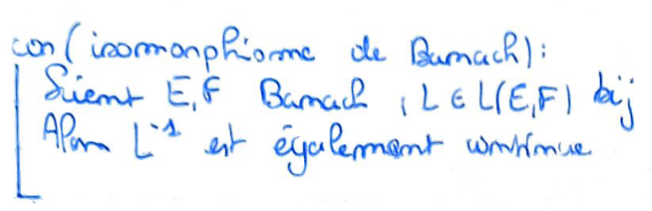 cor (isomorphisme de Banach):
Soient E, F Banach, L ∈ L(E,F) bij
Alors L⁻¹ est également continue